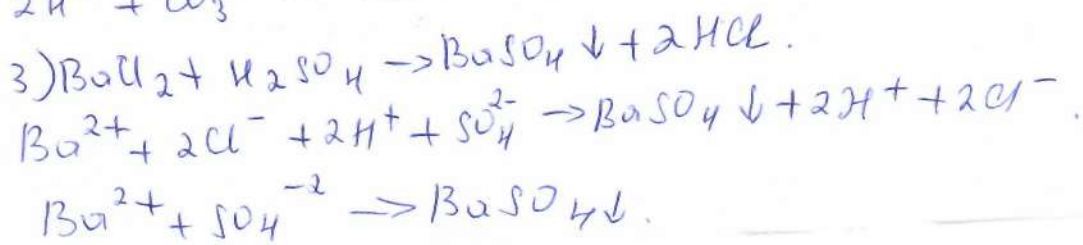 2H⁺ + CO₃
3) BaCl₂ + H₂SO₄ → BaSO₄ ↓ + 2HCl.
Ba²⁺ + 2Cl⁻ + 2H⁺ + SO₄²⁻ → BaSO₄ ↓ + 2H⁺ + 2Cl⁻.
Ba²⁺ + SO₄⁻² → BaSO₄ ↓.